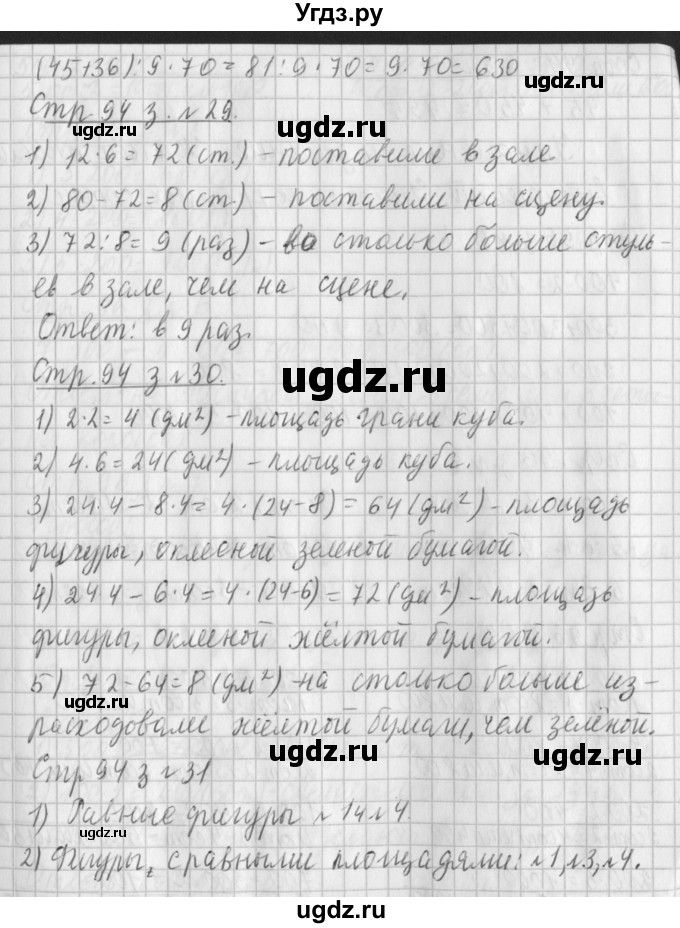 Угдз.ру
(45+36):9·70=81:9·70=9·70=630
Стр. 94 з. №29.
1) 12·6=72(ст.) - поставили в зале.
ugdz.ru
2) 80-72=8(ст.) - поставили на сцену.
3) 72:8=9(раз) - во столько больше стуль-
ев в зале, чем на сцене.
Ответ: в 9 раз.
Стр. 94 з №30.
ugdz.ru
1) 2·2=4(дм²) - площадь грани куба.
2) 4·6=24(дм²) - площадь куба.
3) 24·4-8·4=4·(24-8)=64(дм²) - площадь
фигуры, оклееной зеленой бумагой.
4) 24·4-6·4=4·(24-6)=72(дм²) - площадь
фигуры, оклееной жёлтой бумагой.
5) 72-64=8(дм²) - на столько больше из-
расходовали жёлтой бумаги, чем зелёной.
ugdz.ru
Стр 94 з №31
1) Равные фигуры №1 и №4.
2) Фигуры, с равными площадями: №1, №3, №4.
ugdz.ru